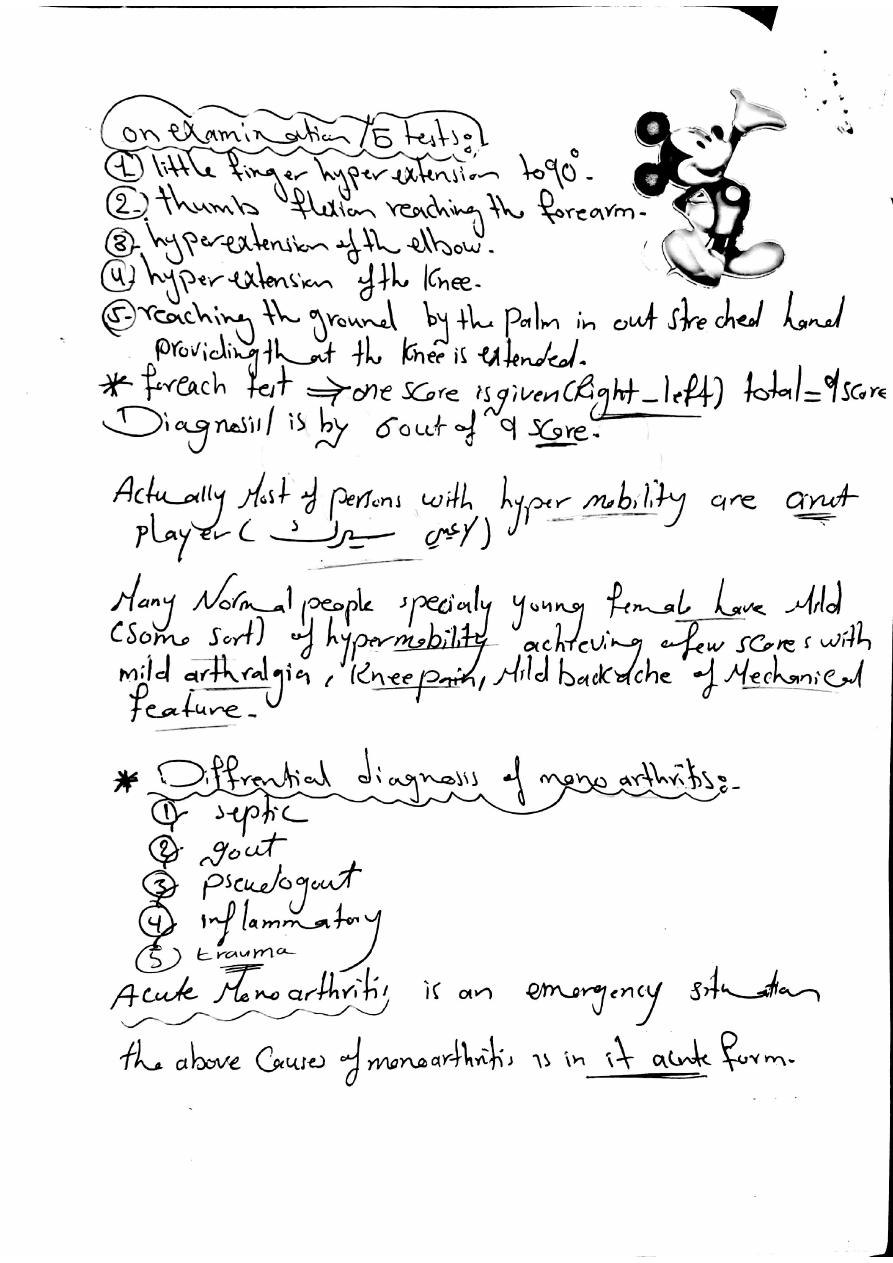 on examination / 5 tests:
① little finger hyper extension to 90°.
② thumb flexion reaching the forearm.
③ hyperextension of the elbow.
④ hyper extension of the Knee.
⑤ reaching the ground by the palm in out streched hand
providing that the Knee is extended.
* foreach test ⇒ one score is given (Right _ left) total = 9 score
Diagnosis/ is by 6 out of 9 score.
Actually Most of persons with hyper mobility are
player ( سيرك )
Many Normal people specialy young female have Mild
(Some sort) of hypermobility achieving a few scores with
mild arthralgia, Knee pain, Mild backache of Mechanical
feature.
* Diffrential diagnosis of mono arthritis:-
① septic
② gout
③ pseudogout
④ inflammatory
⑤ trauma
Acute Mono arthritis is an emergency situation
the above Causes of monoarthritis is in it acute form.